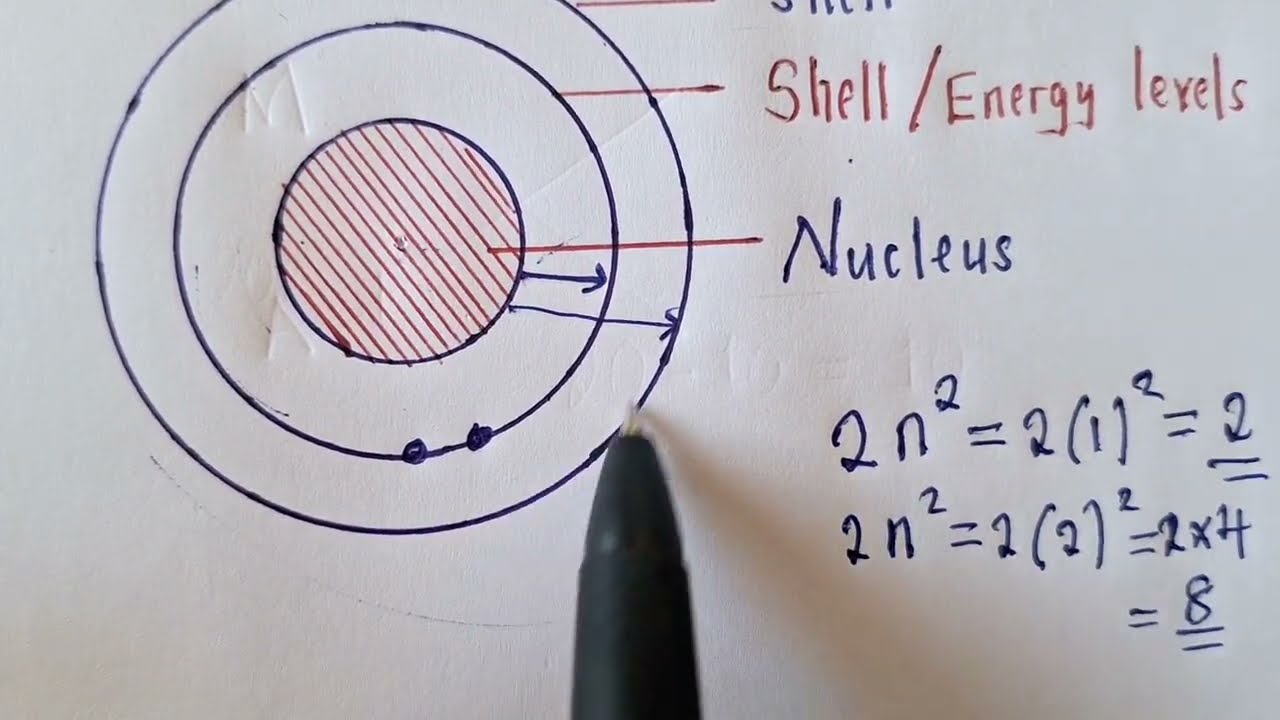 Shell
Shell/Energy levels
Nucleus
2n² = 2(1)² = 2
2n² = 2(2)² = 2×4
= 8